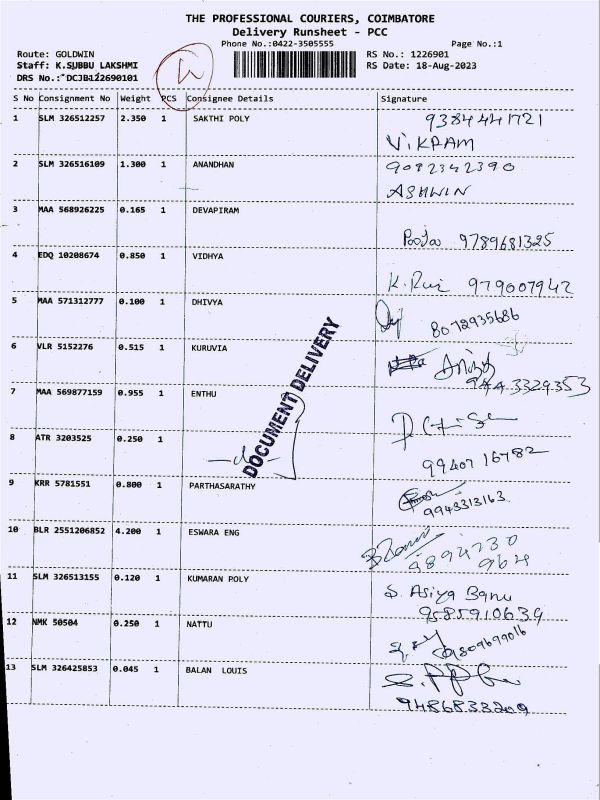 THE PROFESSIONAL COURIERS, COIMBATORE
Delivery Runsheet - PCC
Phone No.:0422-3505555 Page No.:1
Route: GOLDWIN RS No.: 1226901
Staff: K.SUBBU LAKSHMI RS Date: 18-Aug-2023
DRS No.: DCJB122690101
S No Consignment No Weight PCS Consignee Details Signature
1 SLM 326512257 2.350 1 SAKTHI POLY 9384441721
VIKRAM
2 SLM 326516109 1.300 1 ANANDHAN 9092342390
ASHWIN
3 MAA 568926225 0.165 1 DEVAPIRAM
Pooja 9789681325
4 EDQ 10208674 0.850 1 VIDHYA
K. 979007942
5 MAA 571312777 0.100 1 DHIVYA
8072935686
6 VLR 5152276 0.515 1 KURUVIA
9443329353
7 MAA 569877159 0.955 1 ENTHU
DOCUMENT DELIVERY
8 ATR 3203525 0.250 1
9940716782
9 KRR 5781551 0.800 1 PARTHASARATHY
9943313163
10 BLR 2551206852 4.200 1 ESWARA ENG
9894230
964
11 SLM 326513155 0.120 1 KUMARAN POLY
S. Asiya Banu
9585910639
12 NMK 50504 0.250 1 NATTU
9809699016
13 SLM 326425853 0.045 1 BALAN LOUIS
9486833209